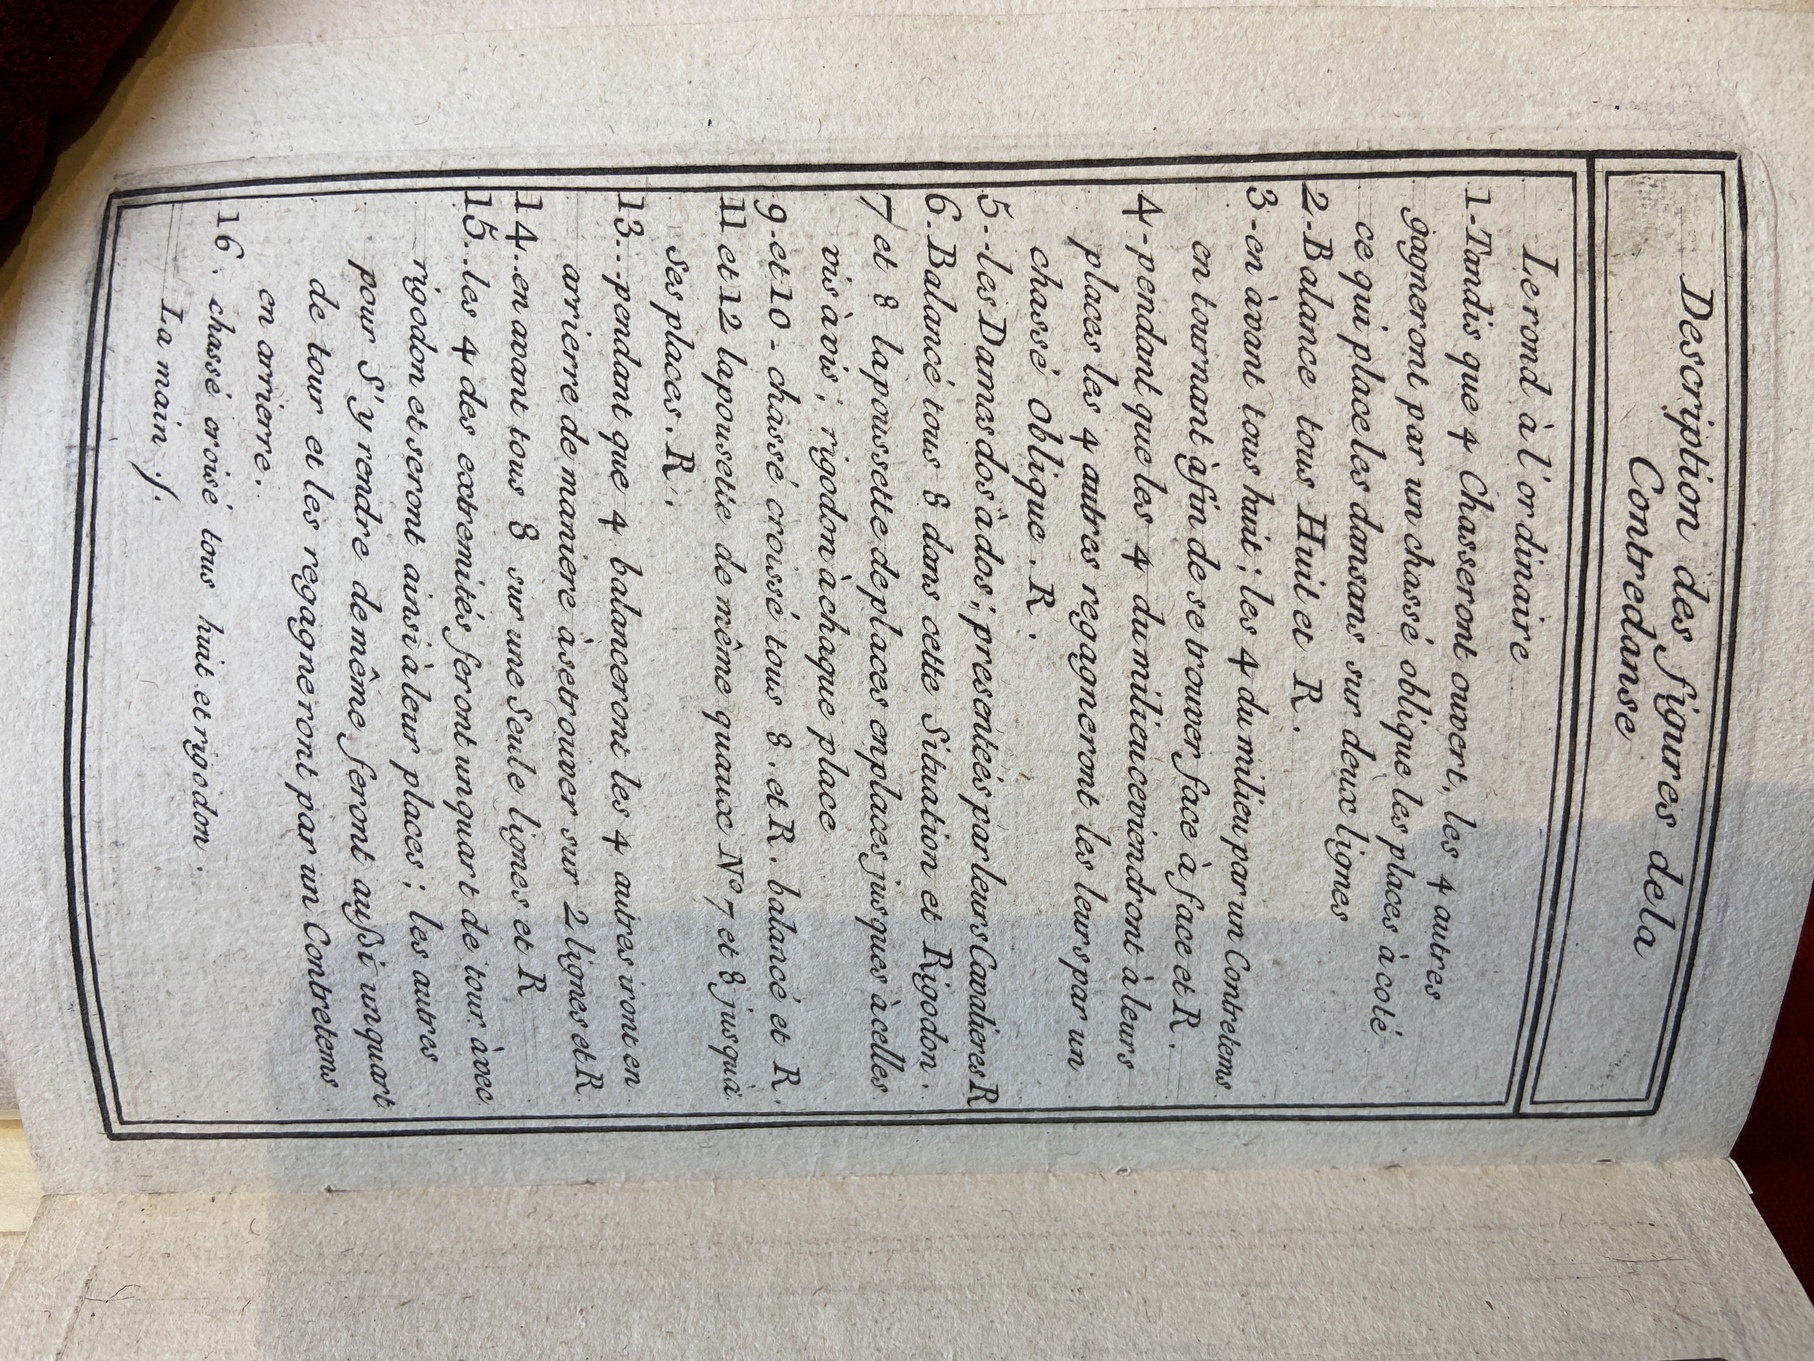 Description des figures de la
Contredanse
Le rond à l'ordinaire
1-Tandis que 4 Chasseront ouvert, les 4 autres
gagneront par un chassé oblique les places à coté
ce qui place les dansans sur deux lignes
2-Balance tous Huit et R.
3-en àvant tous huit; les 4 du milieu par un Contretems
en tournant àfin de se trouver face à face et R.
4-pendant que les 4 du milieu reviendront à leurs
places les 4 autres regagneront les leurs par un
chassé oblique. R.
5--les Dames dos à dos; presenteés par leurs Cavalieres R
6. Balancé tous 8 dans cette Situation et Rigodon.
7 et 8 la poussette de places en places jusques à celles
vis à vis; rigodon à chaque place
9-et 10- chassé croissé tous 8. et R. balancé et R.
11 et 12 la pousette de même quaux No. 7 et 8 jusqua
Ses places. R.
13--pendant que 4 balanceront les 4 autres iront en
arrierre de maniere à se trouver sur 2 lignes et R.
14..en avant tous 8 sur une Seule lignes et R
15..les 4 des extremités feront un quart de tour. àvec
rigodon et seront ainsi à leur places; les autres
pour S'y rendre de même feront aussi un quart
de tour et les regagneront par un Contretems
en arrierre.
16. chassé croisé tous huit et rigodon.
La main ./.